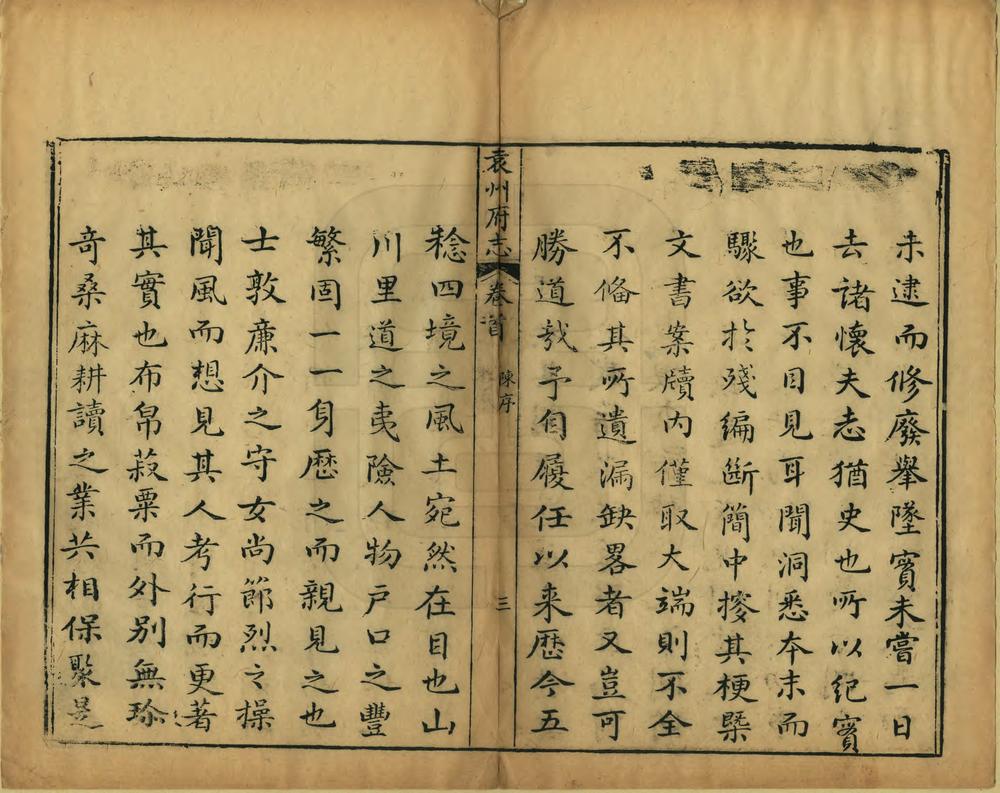 未逮而修廢舉墜實未嘗一日
去諸懷夫志猶史也所以紀實
也事不目見耳聞洞悉本末而
驟欲扵殘編斷簡中摉其梗槩
文書案牘內僅取大端則不全
不俻其所遺漏缺畧者又豈可
勝道㢤予自履任以来歷今五
袁州府志
卷首
陳序
三
稔四境之風土宛然在目也山
川里道之夷險人物戶口之豐
繁固一一身歷之而親見之也
士敦廉介之守女尚節烈之操
聞風而想見其人考行而更著
其實也布帛菽粟而外別無珍
竒桑麻耕讀之業共相保聚是